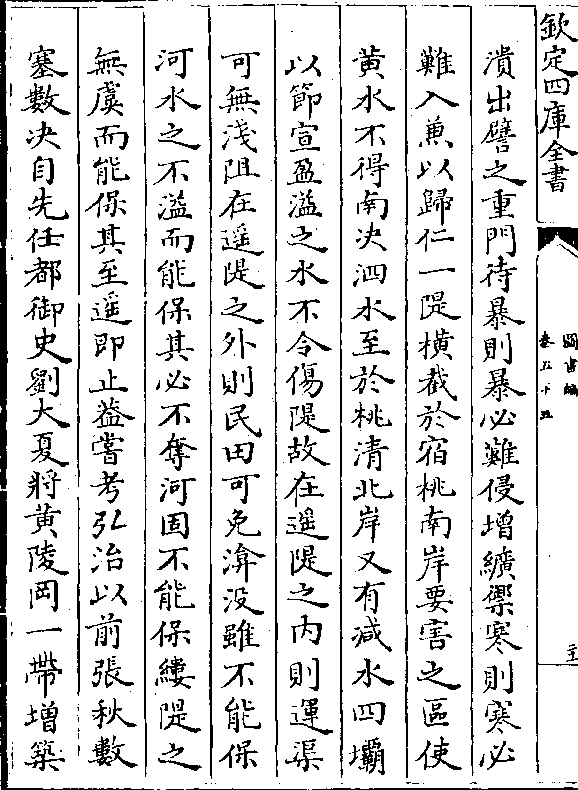 欽定四庫全書
圖書編
卷五十五
潰出譬之重門待暴則暴必難侵增纊禦寒則寒必
難入兼以歸仁一隄橫截於宿桃南岸要害之區使
黄水不得南决泗水至於桃清北岸又有减水四壩
以節宣盈溢之水不令傷隄故在遥隄之内則運渠
可無淺阻在遥隄之外則民田可免渰没雖不能保
河水之不溢而能保其必不奪河固不能保縷隄之
無虞而能保其至遥即止葢嘗考弘治以前張秋數
塞數决自先任都御史劉大夏將黄陵岡一帶增築